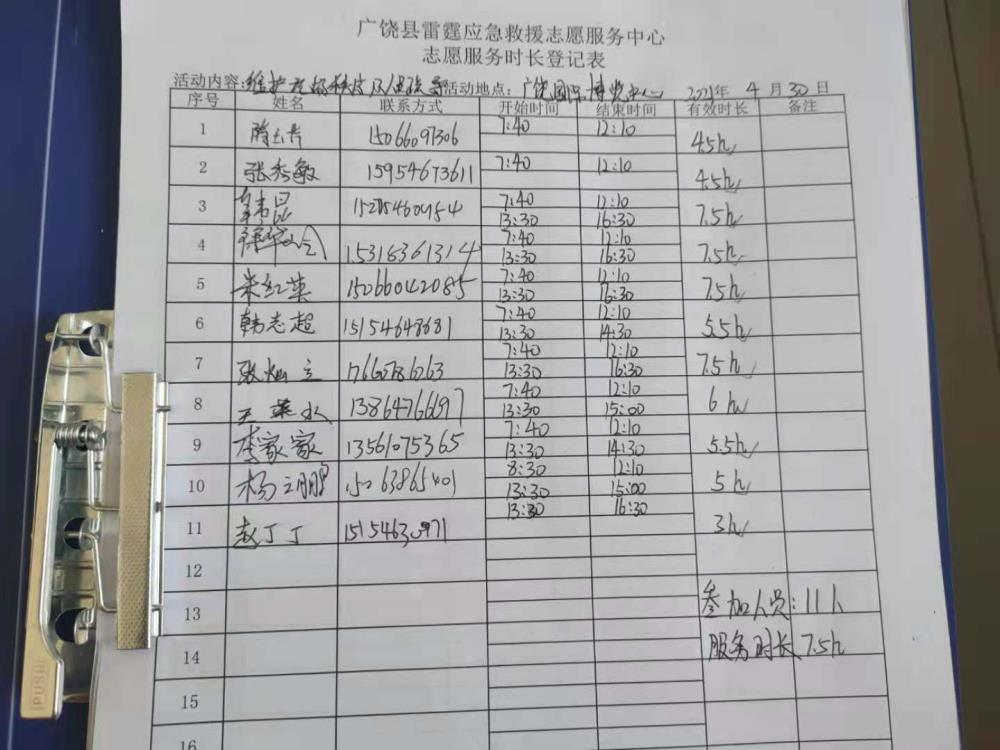 广饶县雷霆应急救援志愿服务中心
志愿服务时长登记表
活动内容: 维护现场秩序及 活动地点: 广饶国际博览中心 2021年 4 月 30 日
序号 姓名 联系方式 开始时间 结束时间 有效时长 备注
1 15066097306 7:40 12:10 4.5h
2 张秀敏 15954673611 7:40 12:10 4.5h
3 韩昆 7:40 12:10 7.5h
13:30 16:30
4 15318361314 7:40 12:10 7.5h
13:30 16:30
5 朱红英 15066042085 7:40 12:10 7.5h
13:30 16:30
6 韩志超 15154648681 7:40 12:10 5.5h
13:30 14:30
7 张灿立 17660786263 7:40 12:10 7.5h
13:30 16:30
8 王英水 13864766697 7:40 12:10 6h
13:30 15:00
9 李家家 13561075365 7:40 12:10 5.5h
13:30 14:30
10 杨立鹏 15063865401 8:30 12:10 5h
13:30 15:00
11 赵丁丁 15154630971 13:30 16:30 3h
12
13 参加人员: 11人
14 服务时长 7.5h
15
16
PUSH